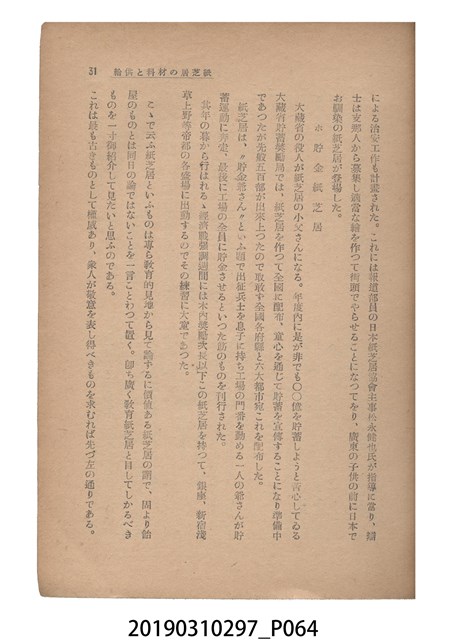 紙芝居の材料と供給 31
による治安工作も計畫された。これには報道部員の日本紙芝居協會主事松永健也氏が指導に當り、辯
士は支那人から募集し適當な繪を作つて街頭でやらせることになつてをり、廣東の子供の前に日本で
お馴染の紙芝居が登場した。
貯金紙芝居
大藏省の役人が紙芝居の小父さんになる。年度內に是が非でも〇〇億を貯蓄しようと苦心してゐる
大藏省貯蓄奬勵局では、紙芝居を作つて全國に配布、童心を通じて貯蓄を宣傳することになり準備中
であつたが先般五百部が出來上つたので取敢す全國各府縣と六大都市宛これを配布した。
紙芝居は、〝貯金爺さん〟といふ題で出征兵士を息子に持ち工場の門番を勤める一人の爺さんが貯
蓄運動に奔走、最後に工場の全員に貯金させるといつた筋のものを刊行された。
其年の暮から行はれる經濟戰强調週間には木內奬勵次長以下この紙芝居を持つて、銀座、新宿淺
草上野等帝都の各盛場に出動するのでその練習に大童であつた。
こゝで云ふ紙芝居といふものは專ら敎育的見地から見て論ずるに價値ある紙芝居の謂で、固より飴
屋のものとは同日の論ではないことを一言ことわつて置く。卽ち廣く敎育紙芝居と目してしかるべき
ものを一寸御紹介して見たいと思ふのである。
これは最も古きものとして權威あり、衆人が敬意を表し得べきものを求むれば先づ左の通りである。
20190310297_P064